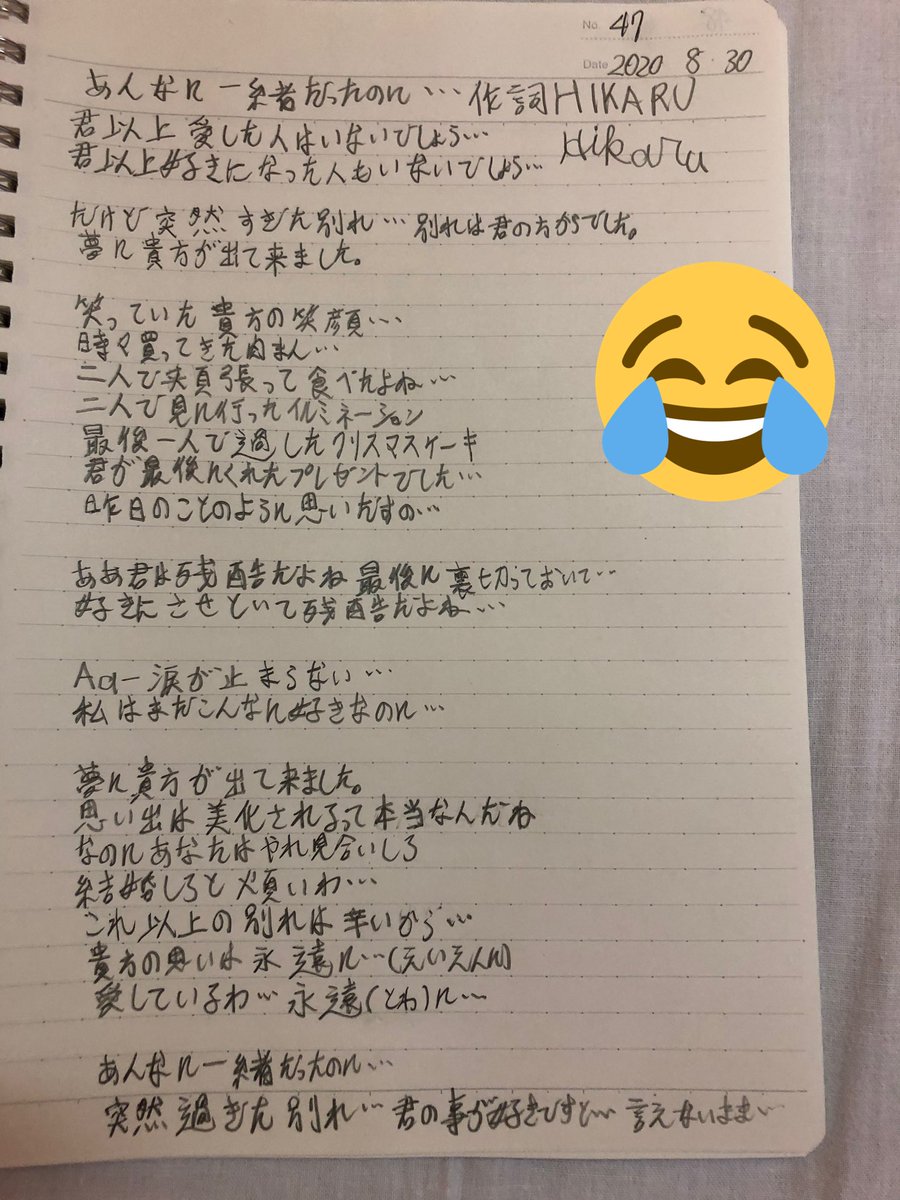 No. 47
Date 2020 8 30
あんなに一緒だったのに… 作詞HIKARU
Hikaru
君以上愛した人はいないでしょう…
君以上好きになった人もいないでしょう…
だけど突然すぎた別れ… 別れは君の方からでした。
夢に貴方が出て来ました。
笑っていた貴方の笑顔…
時々買ってきた肉まん…
二人で頬張って食べたよね…
二人で見に行ったイルミネーション
最後一人で過したクリスマスケーキ
君が最後にくれたプレゼントでした…
昨日のことのように思いだすの…
ああ君は残酷だよね最後に裏切っておいて…
好きにさせといて残酷だよね…
Aaー涙が止まらない…
私はまだこんなに好きなのに…
夢に貴方が出て来ました。
思い出は美化されるって本当なんだね
なのにあなたはやれ見合いしろ
結婚しろと煩いわ…
これ以上の別れは辛いから…
貴方の思いは永遠に…(えいえんに)
愛しているわ…永遠(とわ)に…
あんなに一緒だったのに…
突然過ぎた別れ… 君の事が好きですと… 言えないまま…